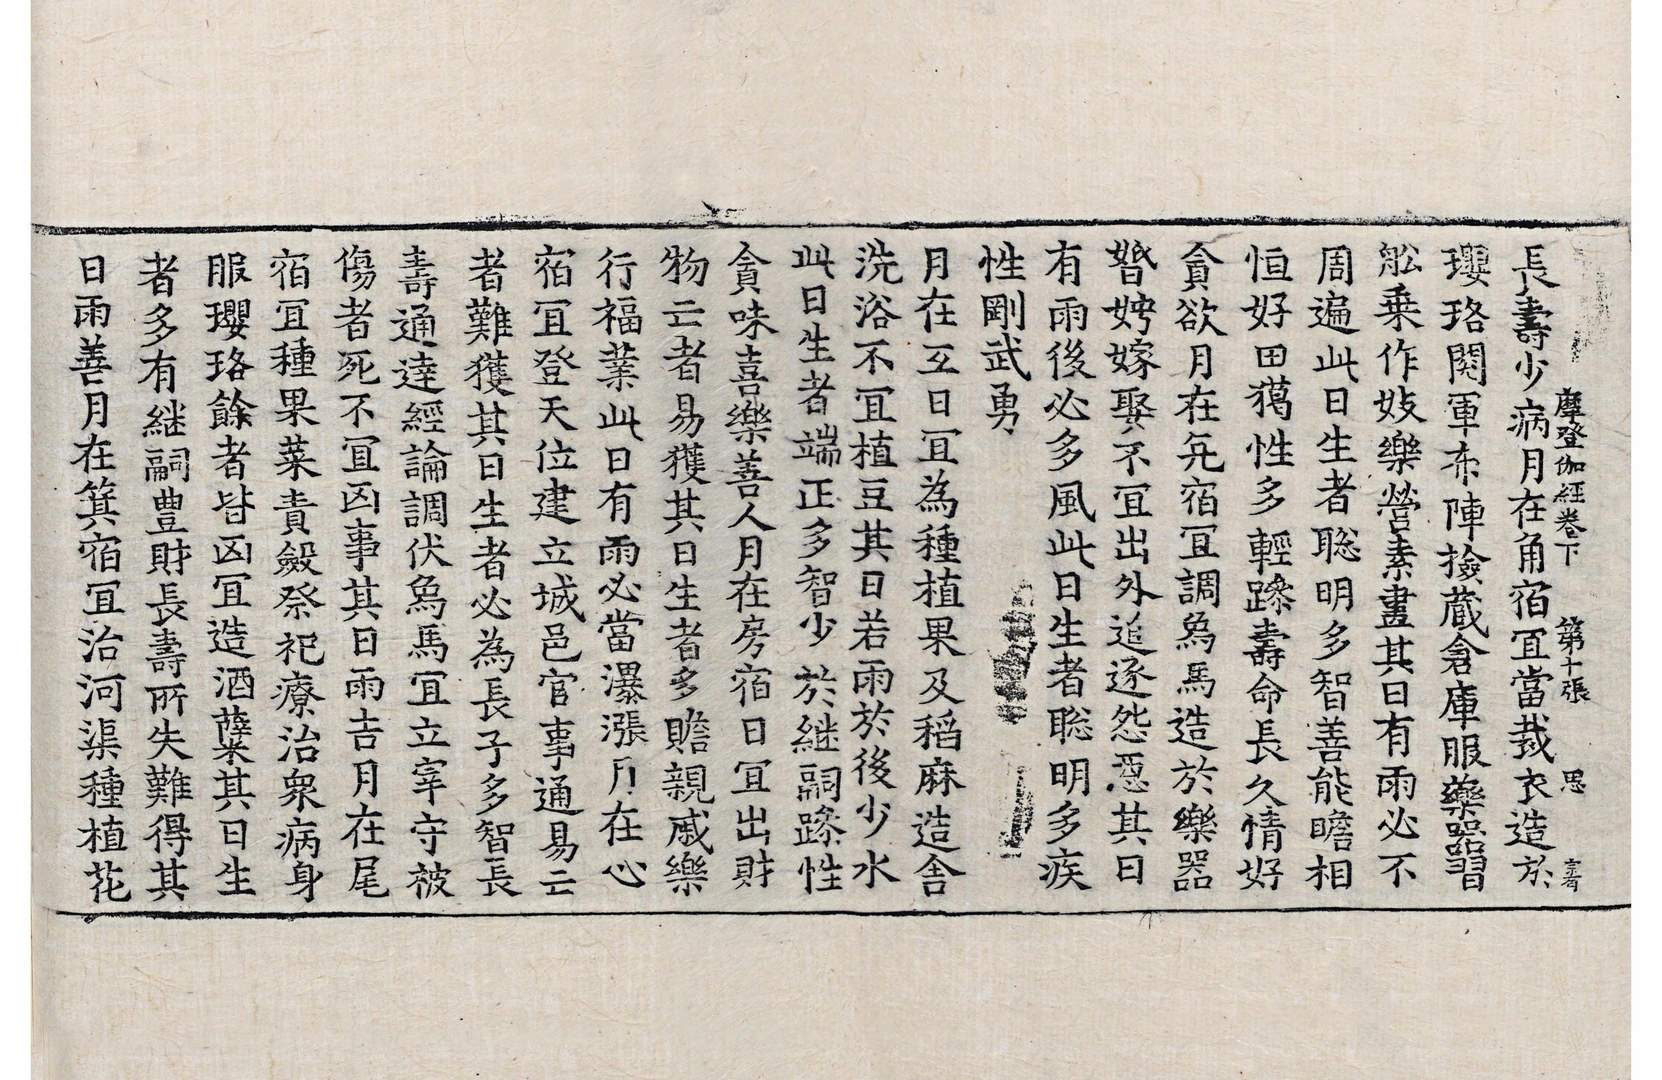 摩登伽經卷下　第十張　思
長壽少病月在角宿冝當裁衣造於
瓔珞閱軍布陣撿蔵倉庫服藥噐習
舩乗作妓樂營素畫其日有雨必不
周遍此日生者聡明多智善能瞻相
恒好田獦性多輕躁壽命長久情好
貪欲月在𠃵宿冝調為馬造於樂器
婚娉嫁娶不冝出外追逐怨惡其日
有雨後必多風此日生者聡明多疾
性剛武勇
月在互日冝為種植果及稻麻造舎
洗浴不冝植豆其日若雨於後少水
此日生者端正多智少於継嗣躁性
貪味喜樂善人月在房宿日冝出財
物亡者易獲其日生者多贍親戚樂
行福業此日有雨必當瀑漲月在心
宿冝登天位建立城邑官事通易亡
者難獲其日生者必為長子多智長
壽通達經論調伏為馬冝立宰守被
傷者死不冝凶事其日雨吉月在尾
宿冝種果菜責斂祭祀療治衆病身
服瓔珞餘者皆凶冝造酒蘖其日生
者多有継嗣豊財長壽所失難得其
日雨善月在箕宿冝治河渠種植花